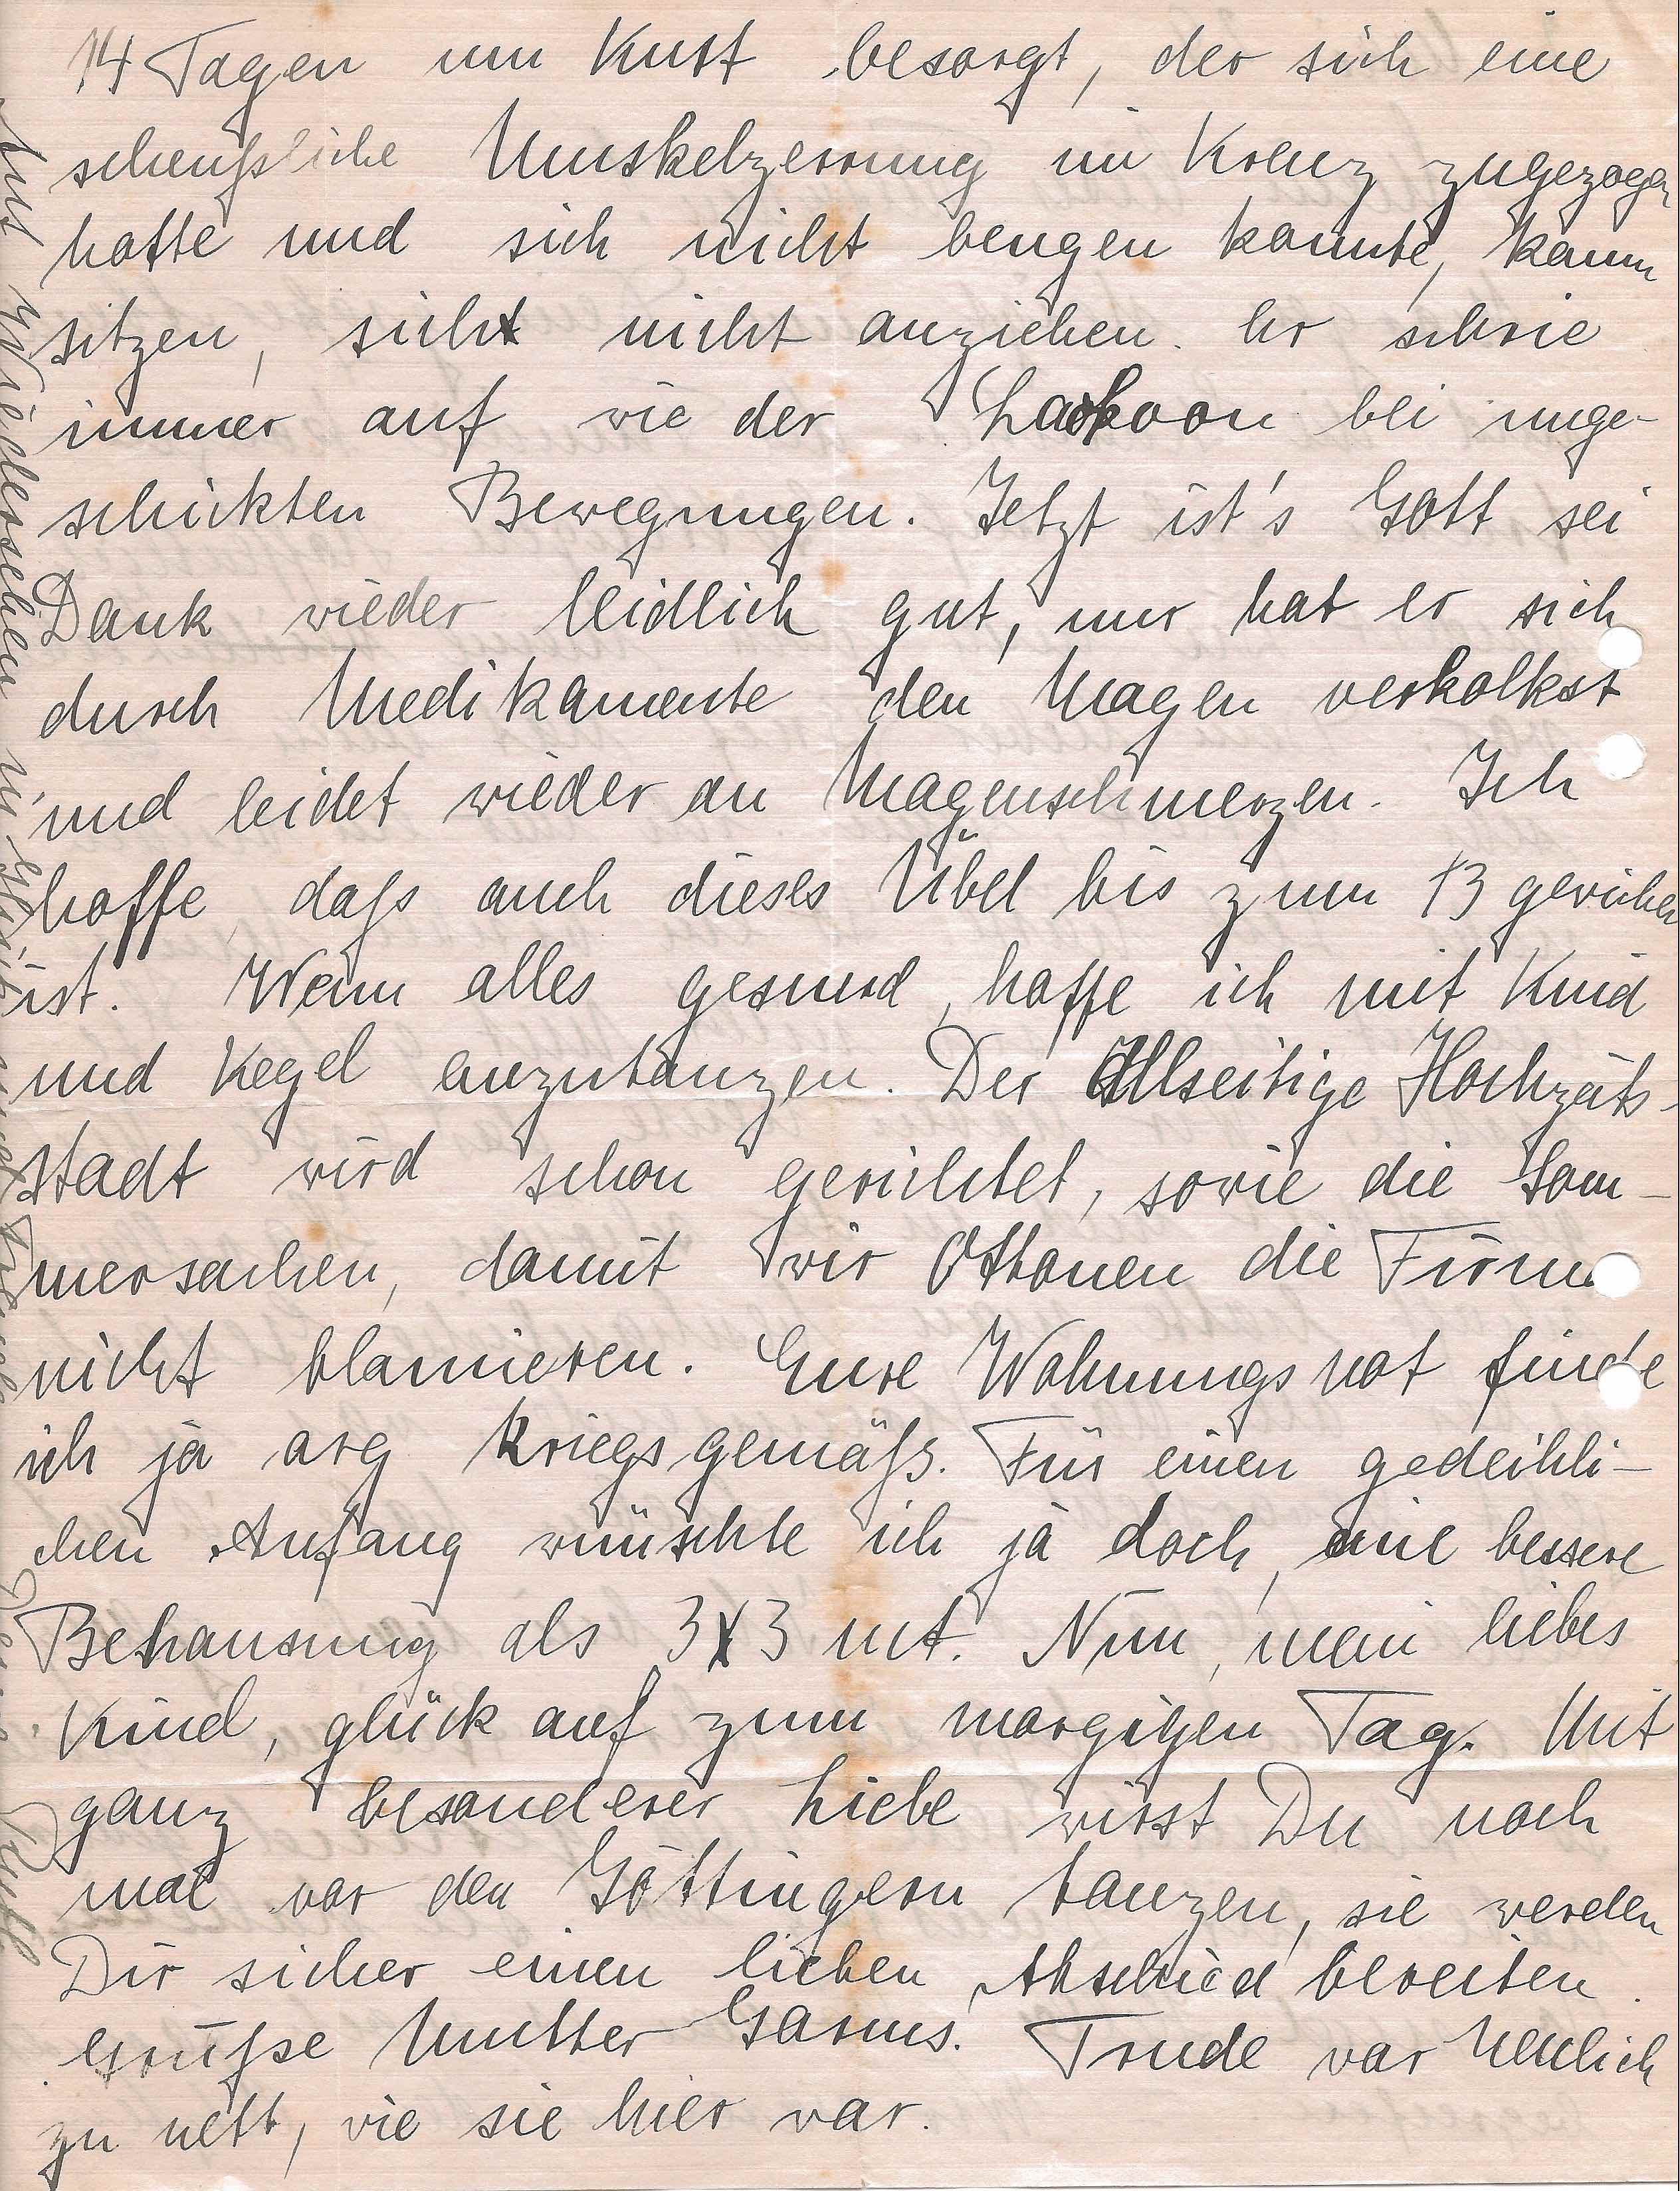 14 Tagen um Kurt besorgt, der sich eine
scheußliche Muskelzerrung im Kreuz zugezogen
hatte und sich nicht beugen konnte, kaum
sitzen, sich nicht anziehen. Er schrie
immer auf wie der Laokoon bei unge-
schickten Bewegungen. Jetzt ist's Gott sei
Dank wieder leidlich gut, nur hat er sich
durch Medikamente den Magen verkolkst
und leidet wieder an Magenschmerzen. Ich
hoffe, daß auch dieses Übel bis zum 13 gewichen
ist. Wenn alles gesund, hoffe ich mit Kind
und Kegel anzutanzen. Der Allseitige Hochzeits-
stadt wird schon gerichtet, sowie die Som-
mersachen, damit wir Ottonen die Firma
nicht blamieren. Eure Wohnungsnot finde
ich ja arg kriegsgemäß. Für einen gedeihli-
chen Anfang wünschte ich ja doch, eine bessere
Behausung als 3x3 mt. Nun, mein liebes
Kind, glück auf zum morgigen Tag. Mit
ganz besonderer Liebe wirst Du noch
mal vor den Göttingern tanzen, sie werden
Dir sicher einen lieben Abschied bereiten.
Grüße Mutter Garms. Trude war neulich
zu nett, wie sie hier war.
Auf Wiedersehen in